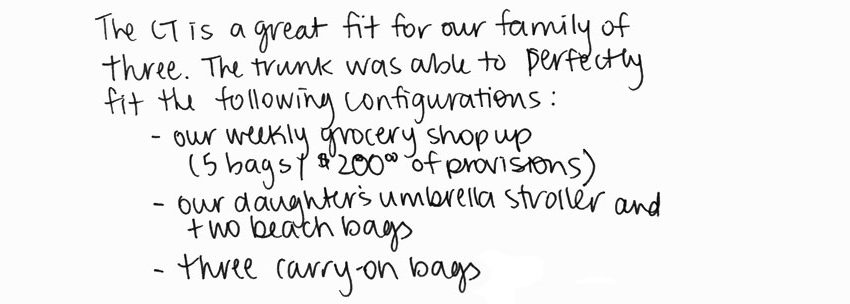 The CT is a great fit for our family of
three. The trunk was able to perfectly
fit the following configurations:
- our weekly grocery shop up
(5 bags, $200⁰⁰ of provisions)
- our daughter's umbrella stroller and
two beach bags
- three carry-on bags